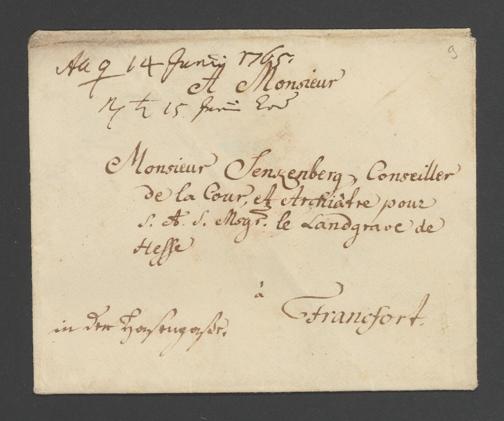 9
Aa ♀ 14 Junij 1765.
A Monsieur
♄ 15. Junii
Monsieur Senkenberg, Conseiller
de la Cour, et Archiâtre pour
S. A. S. Msgr. le Landgrave de
Hesse
à
Francfort.
in der Hasengasse.